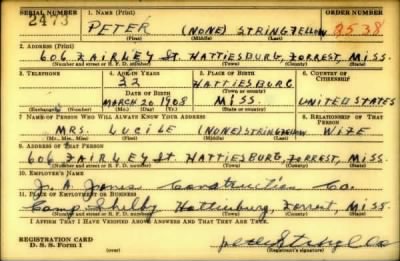 SERIAL NUMBER 1. NAME (Print) ORDER NUMBER
2473 PETER (NONE) STRINGFELLOW 9538
(First) (Middle) (Last)
2. ADDRESS (Print)
606 FAIRLEY St. HATTIESBURG, FORREST, MISS.
(Number and street or R. F. D. number) (Town) (County) (State)
3. TELEPHONE 4. AGE IN YEARS 5. PLACE OF BIRTH 6. COUNTRY OF CITIZENSHIP
32 HATTIESBURG
DATE OF BIRTH (Town or county)
MARCH 20 1908 MISS. UNITED STATES
(Exchange) (Number) (Mo.) (Day) (Yr.) (State or country)
7. NAME OF PERSON WHO WILL ALWAYS KNOW YOUR ADDRESS 8. RELATIONSHIP OF THAT PERSON
MRS. LUCILE (NONE) STRINGFELLOW WIFE
(Mr., Mrs., Miss) (First) (Middle) (Last)
9. ADDRESS OF THAT PERSON
606 FAIRLEY St. HATTIESBURG, FORREST, MISS.
(Number and street or R. F. D. number) (Town) (County) (State)
10. EMPLOYER'S NAME
J. A. Jones Construction Co.
11. PLACE OF EMPLOYMENT OR BUSINESS
Camp Shelby Hattiesburg, Forrest, Miss.
(Number and street or R. F. D. number) (Town) (County) (State)
I AFFIRM THAT I HAVE VERIFIED ABOVE ANSWERS AND THAT THEY ARE TRUE.
REGISTRATION CARD
D. S. S. Form 1 (over) (Registrant's signature)